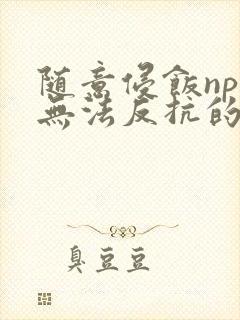 随意侵飯np
無法反抗的
臭豆豆